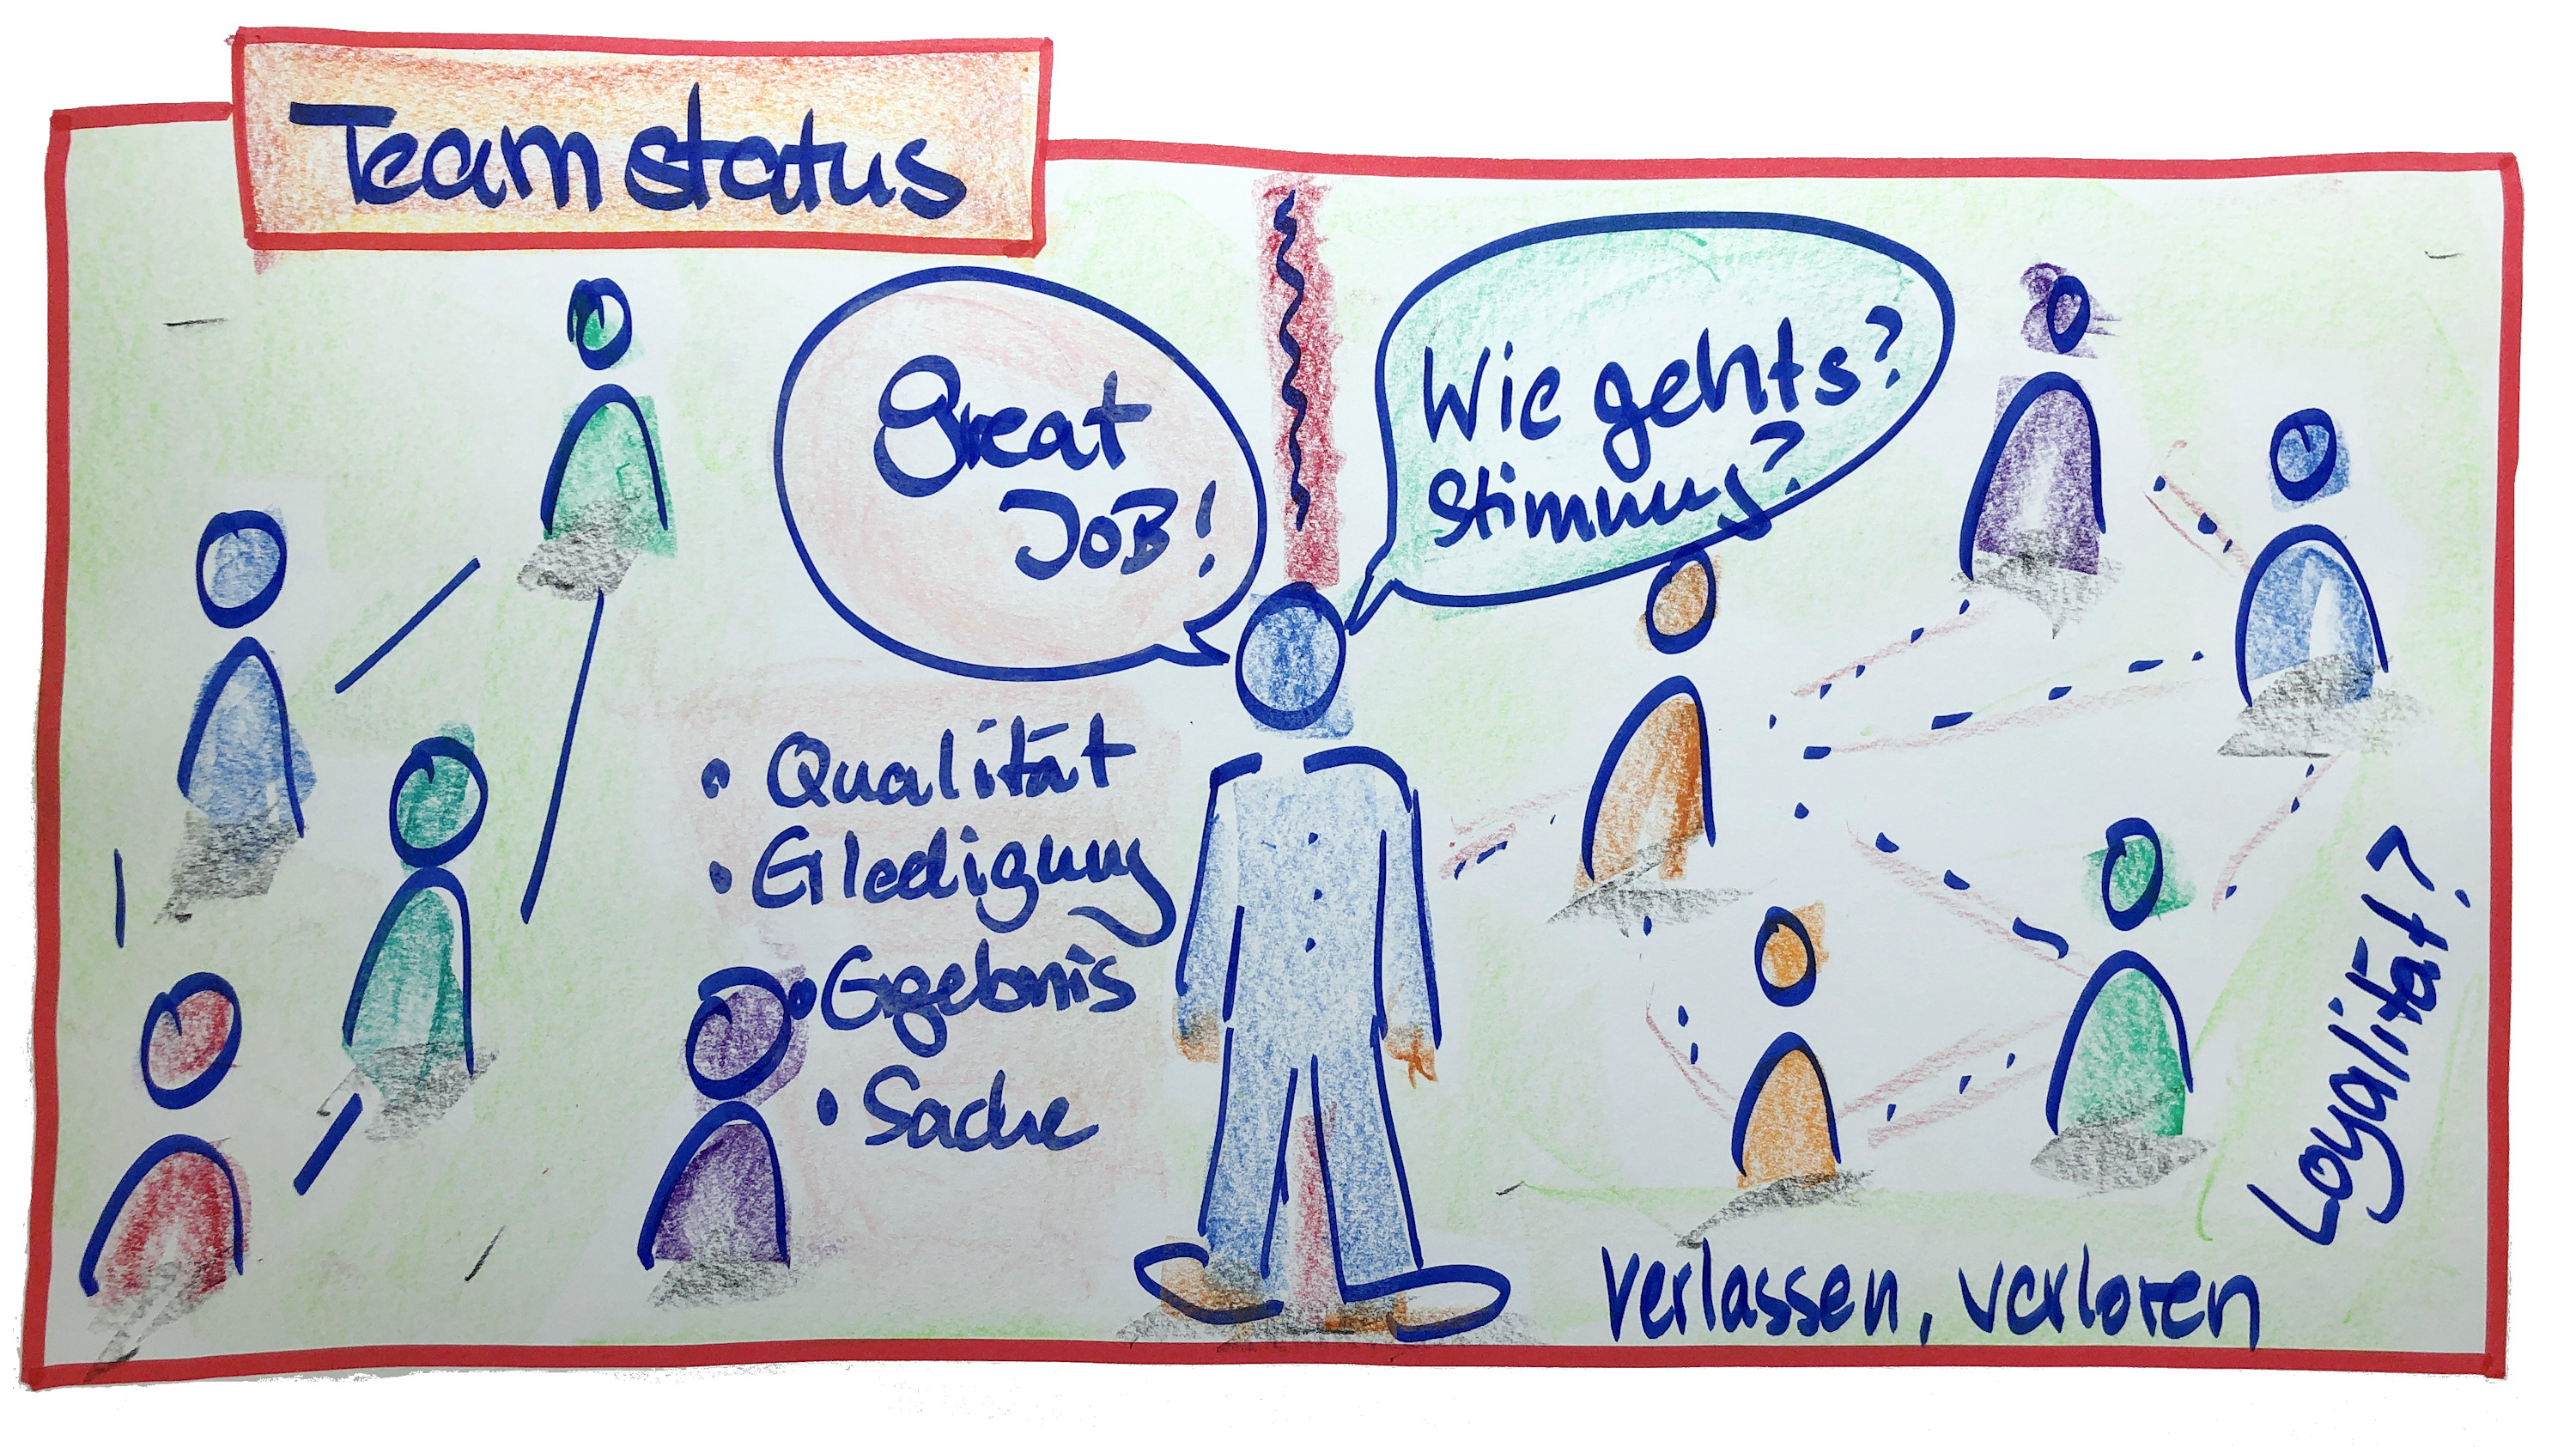 Teamstatus
Great
JOB!
Wie gehts?
Stimmung?
• Qualität
• Erledigung
• Ergebnis
• Sache
Loyalität?
verlassen, verloren